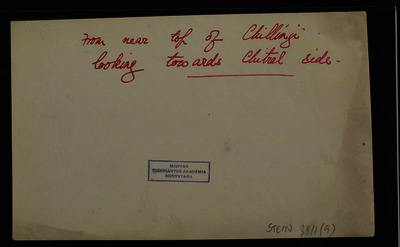 From near top of Chillingi
looking towards Chitral side.
MAGYAR
TUDOMÁNYOS AKADÉMIA
KÖNYVTÁRA
STEIN 38/1(9)